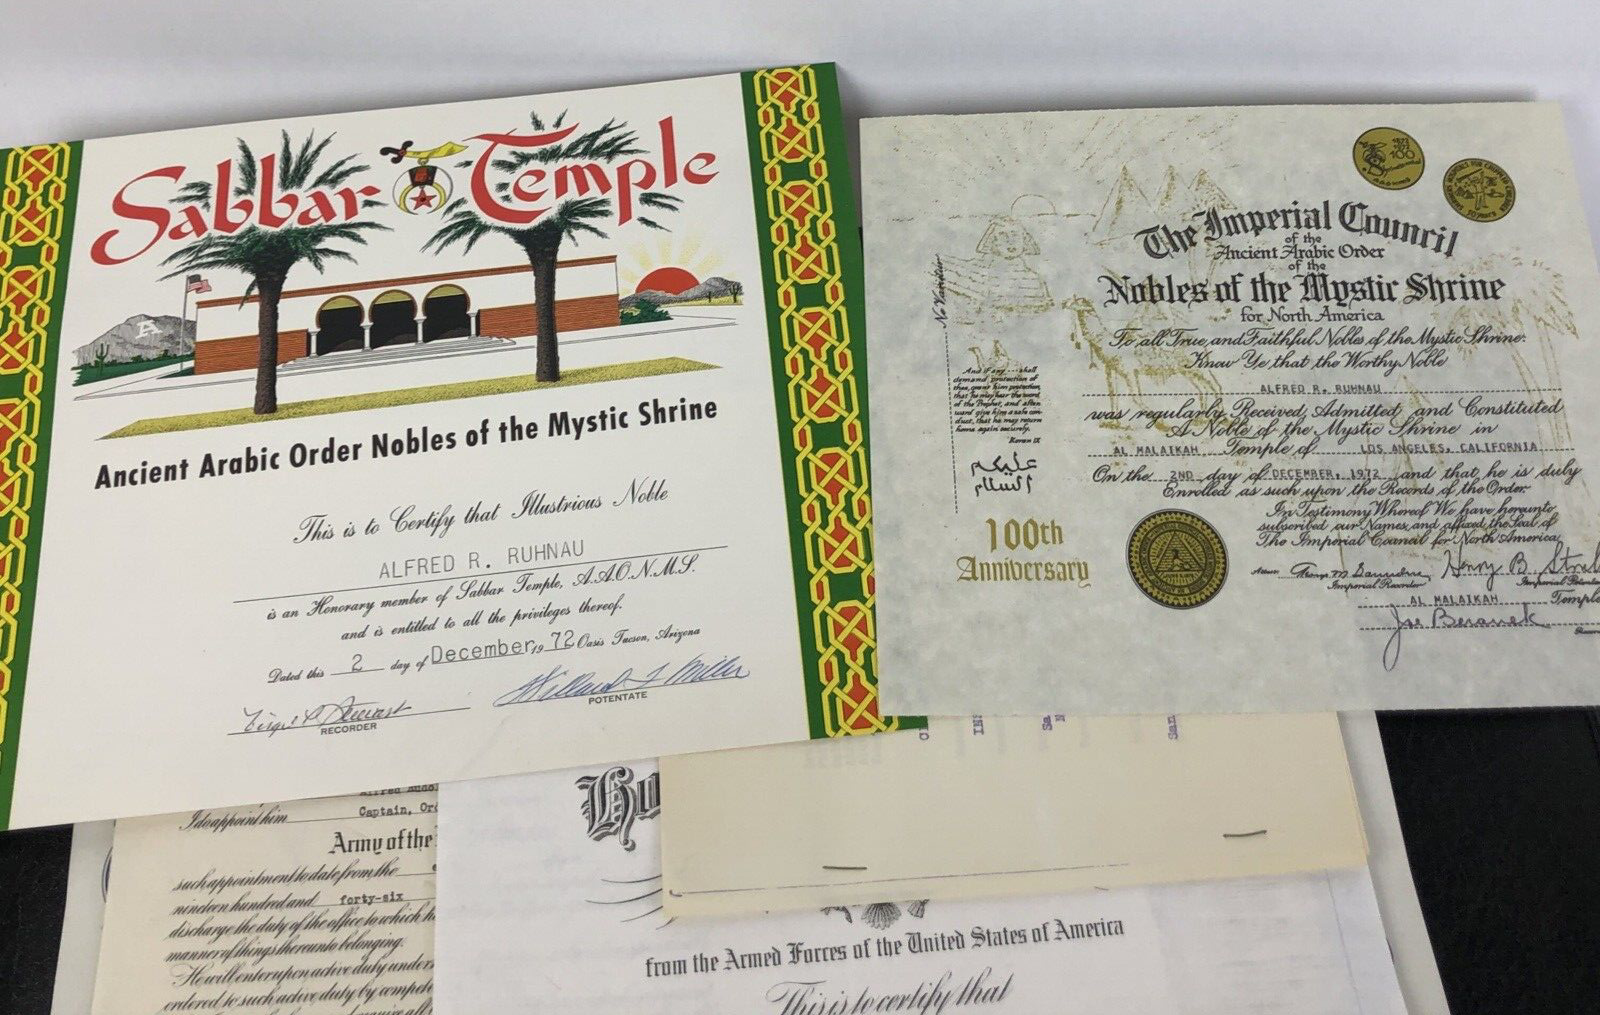 Sabbar Temple
A
Ancient Arabic Order Nobles of the Mystic Shrine
This is to Certify that Illustrious Noble
ALFRED R. RUHNAU
is an Honorary member of Sabbar Temple, A.A.O.N.M.S.
and is entitled to all the privileges thereof.
Dated this 2 day of December, 19 72 Oasis Tucson, Arizona
RECORDER
POTENTATE
The Imperial Council
of the
Ancient Arabic Order
of the
Nobles of the Mystic Shrine
for North America
To all True, and Faithful Nobles of the Mystic Shrine:
Know Ye that the Worthy Noble
ALFRED R. RUHNAU
was regularly Received, Admitted, and Constituted
A Noble of the Mystic Shrine in
AL MALAIKAH Temple of LOS ANGELES, CALIFORNIA
On the 2ND day of DECEMBER, 1972 and that, he is duly
Enrolled as such upon the Records of the Order.
In Testimony Whereof We have hereunto
subscribed our Names, and affixed the Seal of
The Imperial Council for North America
Henry B.
Imperial Recorder
AL MALAIKAH Temple
Joe Beranek
And if any --- shall
demand protection of
thee, grant him protection,
that he may hear the word
of the Prophet, and after-
ward give him a safe con-
duct, that he may return
home again securely.
Koran IX
عليكم
السلام
100th
Anniversary
I do appoint him Captain,
Army of the
such appointment to date from the
nineteen hundred and forty-six
discharge the duty of the office to which h
manner of things thereunto belonging.
He will enter upon active duty under
ordered to such active duty by compet
Ho
from the Armed Forces of the United States of America
This is to certify that